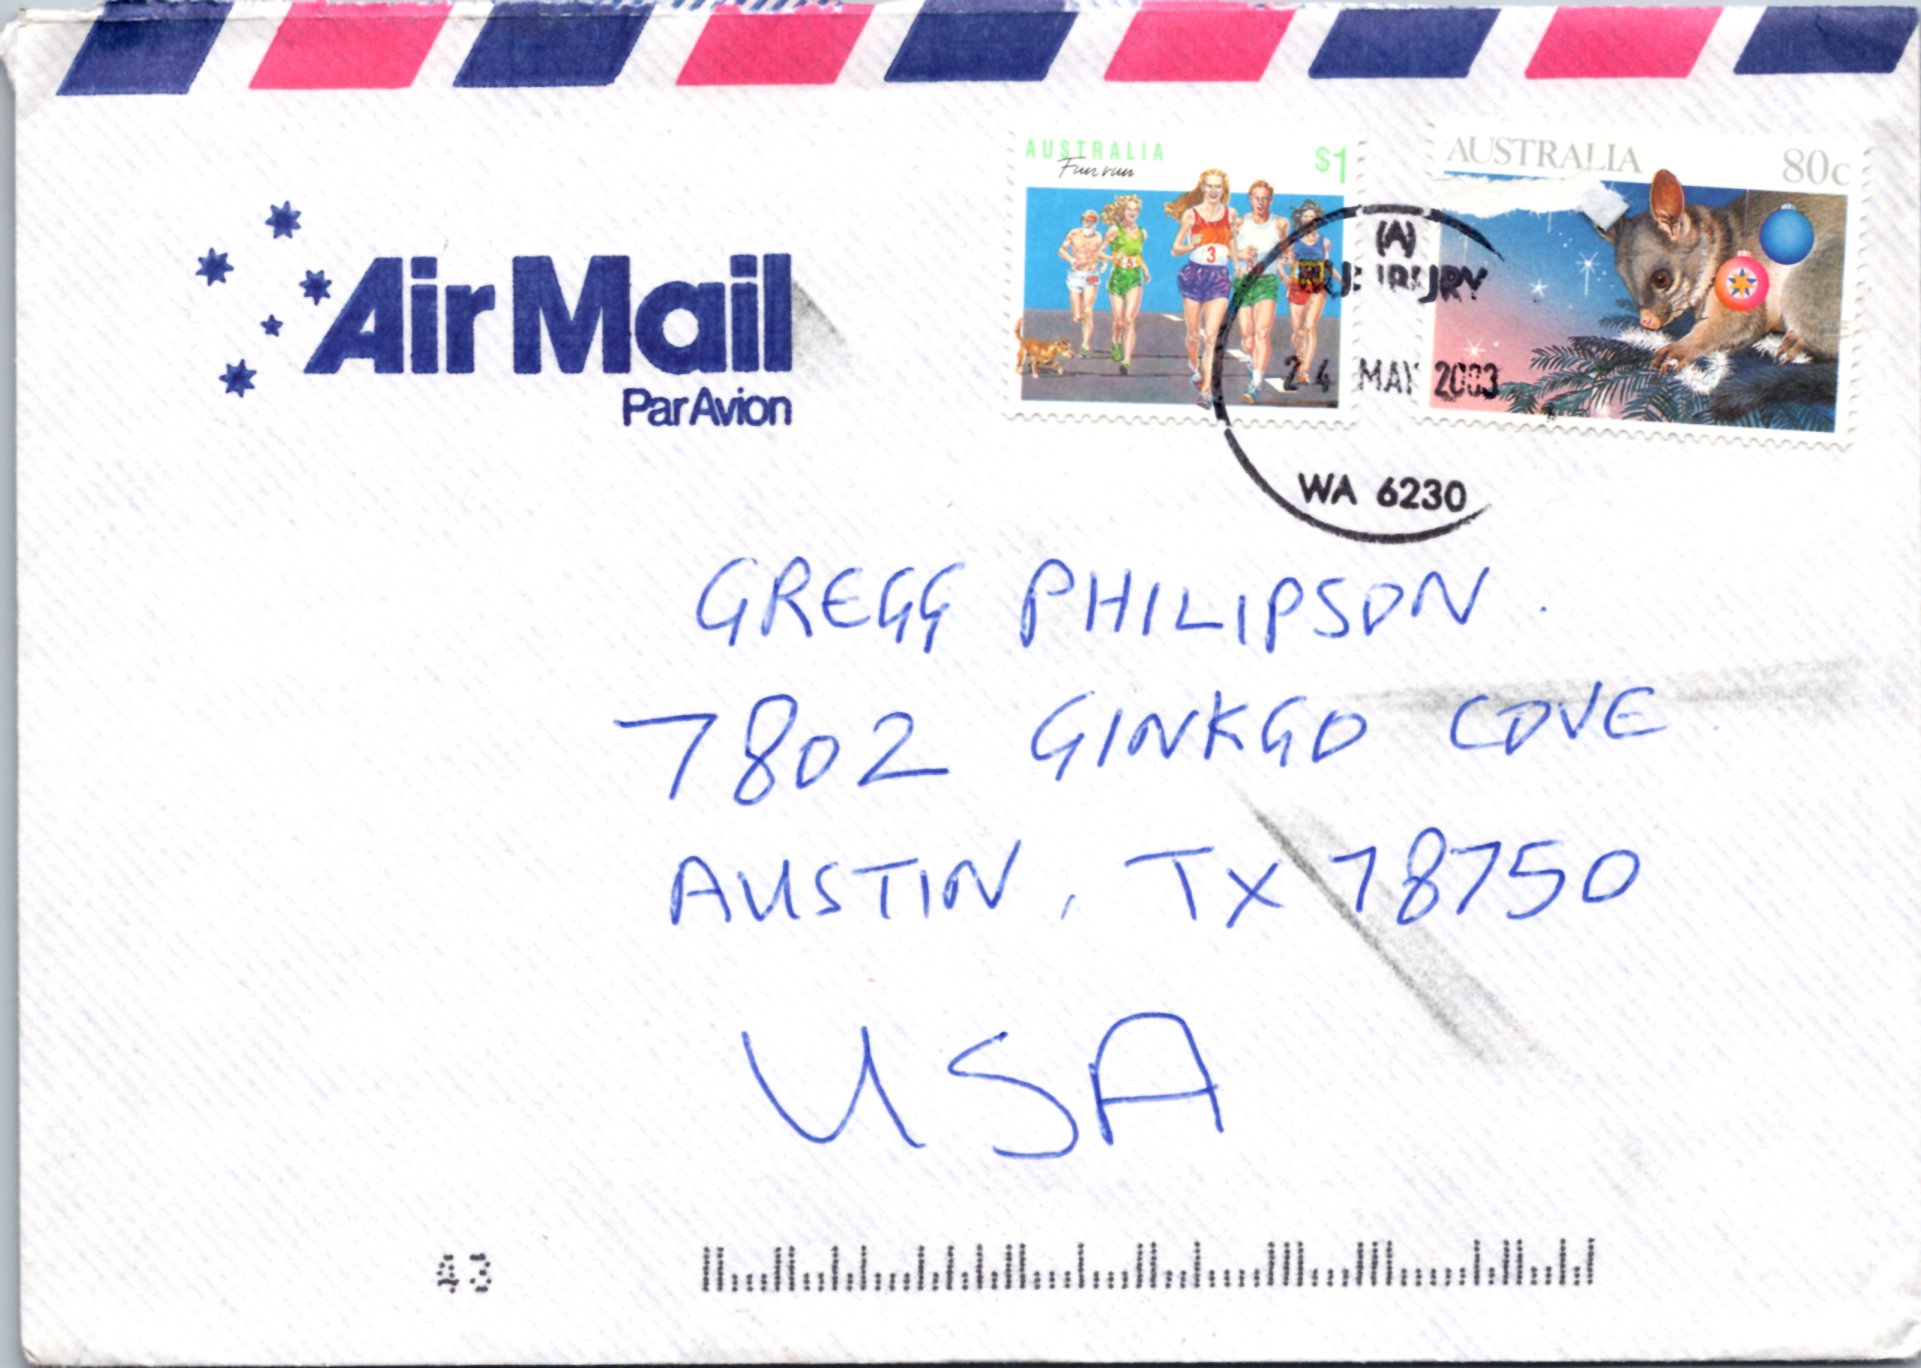 AUSTRALIA
Fun run
$1
AUSTRALIA
80c
Air Mail
Par Avion
(A)
24 MAY 2003
WA 6230
GREGG PHILIPSON.
7802 GINKGO COVE
AUSTIN, TX 78750
USA